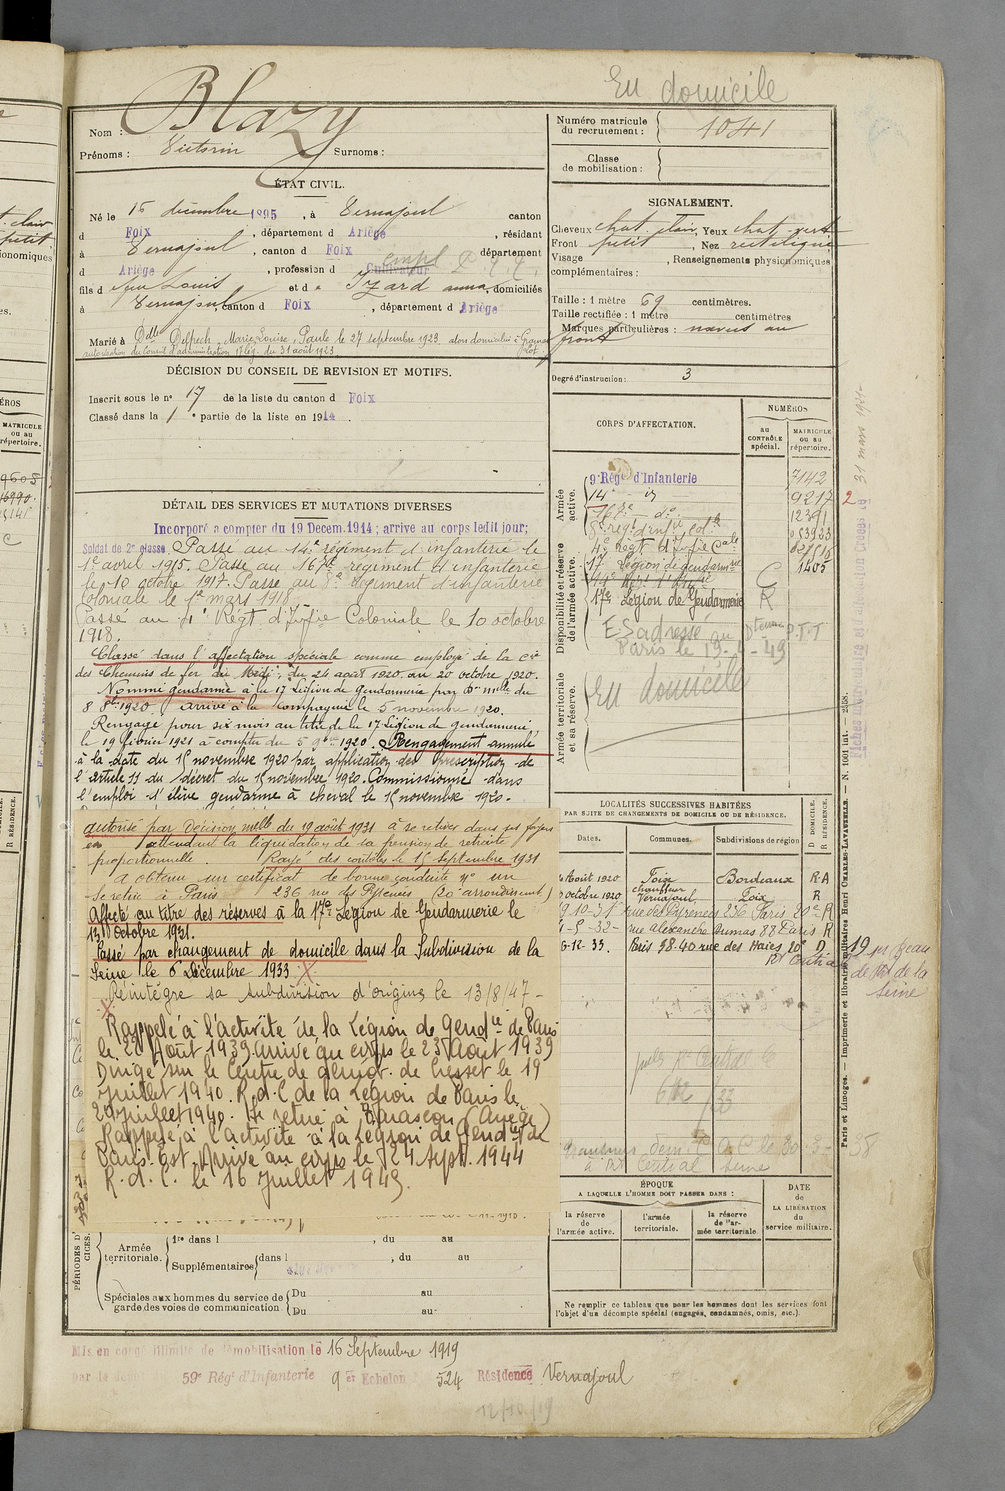 En domicile
Nom : Blazy
Prénoms : Victorin Surnoms :
ÉTAT CIVIL.
Né le 15 décembre 1895, à Vernajoul canton
d Foix, département d Ariège, résidant
à Vernajoul, canton d Foix département
d Ariège, profession d Cultivateur empl P.T.T.
fils d feu Louis et de Izard anna, domiciliés
à Vernajoul, canton d Foix, département d Ariège
Marié à Delle Delpech, Marie, Louise, Paule le 27 septembre 1923 alors domiciliée à Gramat
autorisation du Conseil d'administration 17e lég. du 31 août 1923 (Lot)
DÉCISION DU CONSEIL DE REVISION ET MOTIFS.
Inscrit sous le n° 17 de la liste du canton d Foix
Classé dans la 1e partie de la liste en 1914.
DÉTAIL DES SERVICES ET MUTATIONS DIVERSES
Incorporé a compter du 19 Décem. 1914 ; arrive au corps ledit jour;
Soldat de 2e classe. Passé au 14e régiment d'infanterie le
1er avril 1915. Passe au 167e régiment d'infanterie
le 10 octobre 1917. Passe au 8e régiment d'infanterie
Coloniale le 1er mars 1918.
Passé au 4e Régt d'Ifie Coloniale le 10 octobre
1918.
Classé dans l'affectation spéciale comme employé de la Cie
des Chemins de fer du Midi, du 24 août 1920 au 20 octobre 1920.
Nommé gendarme à la 17 Légion de gendarmerie par don melle du
8 8bre 1920 Arrivé à la Compagnie le 5 novembre 1920.
Rengagé pour six mois au titre de la 17 Légion de gendarmerie,
le 19 février 1921 à compter du 5 9bre 1920. Rengagement annulé
à la date du 15 novembre 1920 par application des prescription de
l'article 11 du décret du 15 novembre 1920. Commissionné dans
l'emploi d'élève gendarme à cheval le 15 novembre 1920.
autorisé par Décision melle du 19 août 1931 à se retirer dans ses foyers
en attendant la liquidation de sa pension de retraite
proportionnelle. Rayé des contrôles le 15 septembre 1931
a obtenu un certificat de bonne conduite
Se retire à Paris 236 rue des Pyrénées (20e arrondissement)
Affecté au titre des réserves à la 17e Légion de Gendarmerie le
13 Octobre 1931.
Passé par changement de domicile dans la Subdivision de la
Seine le 6 Décembre 1933. X
X Réintègre sa subdivision d'origine le 13/8/47 -
Rappelé à l'activité de la Légion de Gendie de Paris
le 23 Août 1939 arrivé au corps le 23 Août 1939
Dirigé sur le Centre de démob. de Cresset le 19
juillet 1940. R.d.C de la Légion de Paris le
20 juillet 1940. Se retire à Tarascon (Ariège)
Rappelé à l'activité à la Légion de Gendie de
Paris Est. Arrivé au corps le 24 Sept. 1944
R.d.C. le 16 juillet 1945.
PÉRIODES D'
CICES.
Armée territoriale. 1re dans l , du au
Supplémentaires dans l , du au
Spéciales aux hommes du service de garde des voies de communication Du au
Du au
Mis en congé illimité de démobilisation le 16 Septembre 1919
par le dépôt du 59e Régt d'Infanterie 9e Echelon 524 Résidence Vernajoul
12/10/19
Numéro matricule du recrutement : 1041
Classe de mobilisation :
SIGNALEMENT.
Cheveux chat. clair, Yeux chat. vert
Front petit, Nez rectiligne
Visage , Renseignements physionomiques
complémentaires :
Taille : 1 mètre 69 centimètres.
Taille rectifiée : 1 mètre centimètres
Marques particulières : naevus au
front
Degré d'instruction : 3
CORPS D'AFFECTATION.
NUMÉROS
au CONTRÔLE spécial.
MATRICULE ou au répertoire.
Armée active.
9e Régt d'Infanterie 7142
14e - d° 9217
167e - d° 12391
8e régt d'infie colle
4e Régt d'Ifie Cale
Disponibilité et réserve de l'armée active.
17 Légion de gendarmie 1405
17e Légion de Gendarmerie R
ES adressé au P.T.T
Paris le 13-4-49
Armée territoriale et sa réserve.
En domicile
LOCALITÉS SUCCESSIVES HABITÉES
PAR SUITE DE CHANGEMENTS DE DOMICILE OU DE RÉSIDENCE.
Dates. Communes. Subdivisions de région D DOMICILE. R RÉSIDENCE.
Août 1920 Foix Bordeaux R A
chauffeur
octobre 1920 Vernajoul, Foix R
9.10-31 rue des Pyrénées 236 Paris 20e R
-5-32- rue alexandre Dumas 88 Paris R
6-12-33. Paris 38.40 rue des Haies 20e D
Bt Central
19
de la
Seine
6/12/33
Central Seine
ÉPOQUE
A LAQUELLE L'HOMME DOIT PASSER DANS :
la réserve de l'armée active.
l'armée territoriale.
la réserve de l'armée territoriale.
DATE de LA LIBÉRATION du service militaire.
Ne remplir ce tableau que pour les hommes dont les services font
l'objet d'un décompte spécial (engagés, condamnés, omis, etc.).
Paris et Limoges. — Imprimerie et librairie militaires Henri CHARLES-LAVAUZELLE. — N. 1001 int. — 2158.
31 mars 1921